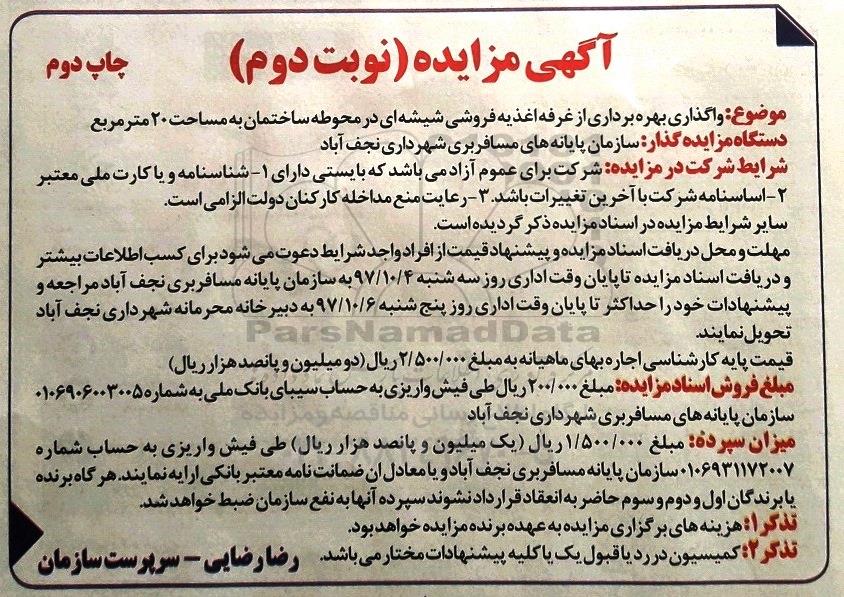 آگهی مزایده (نوبت دوم)
چاپ دوم
موضوع: واگذاری بهره برداری از غرفه اغذیه فروشی شیشه ای در محوطه ساختمان به مساحت ۲۰ مترمربع
دستگاه مزایده گذار: سازمان پایانه های مسافربری شهرداری نجف آباد
شرایط شرکت در مزایده: شرکت برای عموم آزاد می باشد که بایستی دارای ۱- شناسنامه و یا کارت ملی معتبر
۲- اساسنامه شرکت با آخرین تغییرات باشد. ۳- رعایت منع مداخله کارکنان دولت الزامی است.
سایر شرایط مزایده در اسناد مزایده ذکر گردیده است.
مهلت و محل دریافت اسناد مزایده و پیشنهاد قیمت از افراد واجد شرایط دعوت می شود برای کسب اطلاعات بیشتر
و دریافت اسناد مزایده تا پایان وقت اداری روز سه شنبه ۹۷/۱۰/۴ به سازمان پایانه مسافربری نجف آباد مراجعه و
پیشنهادات خود را حداکثر تا پایان وقت اداری روز پنج شنبه ۹۷/۱۰/۶ به دبیرخانه محرمانه شهرداری نجف آباد
تحویل نمایند.
ParsNamadData
قیمت پایه کارشناسی اجاره بهای ماهیانه به مبلغ ۲/۵۰۰/۰۰۰ ریال (دو میلیون و پانصد هزار ریال)
مبلغ فروش اسناد مزایده: مبلغ ۲۰۰/۰۰۰ ریال طی فیش واریزی به حساب سیبای بانک ملی به شماره ۰۱۰۶۹۰۶۰۰۳۰۰۵
سازمان پایانه های مسافربری شهرداری نجف آباد
میزان سپرده: مبلغ ۱/۵۰۰/۰۰۰ ریال (یک میلیون و پانصد هزار ریال) طی فیش واریزی به حساب شماره
۰۱۰۶۹۳۱۱۷۲۰۰۷ سازمان پایانه مسافربری نجف آباد و یا معادل ان ضمانت نامه معتبر بانکی ارایه نمایند. هر گاه برنده
یا برندگان اول و دوم و سوم حاضر به انعقاد قرارداد نشوند سپرده آنها به نفع سازمان ضبط خواهد شد.
تذکر ۱: هزینه های برگزاری مزایده به عهده برنده مزایده خواهد بود.
تذکر ۲: کمیسیون در رد یا قبول یک یا کلیه پیشنهادات مختار می باشد.
رضا رضایی – سرپرست سازمان